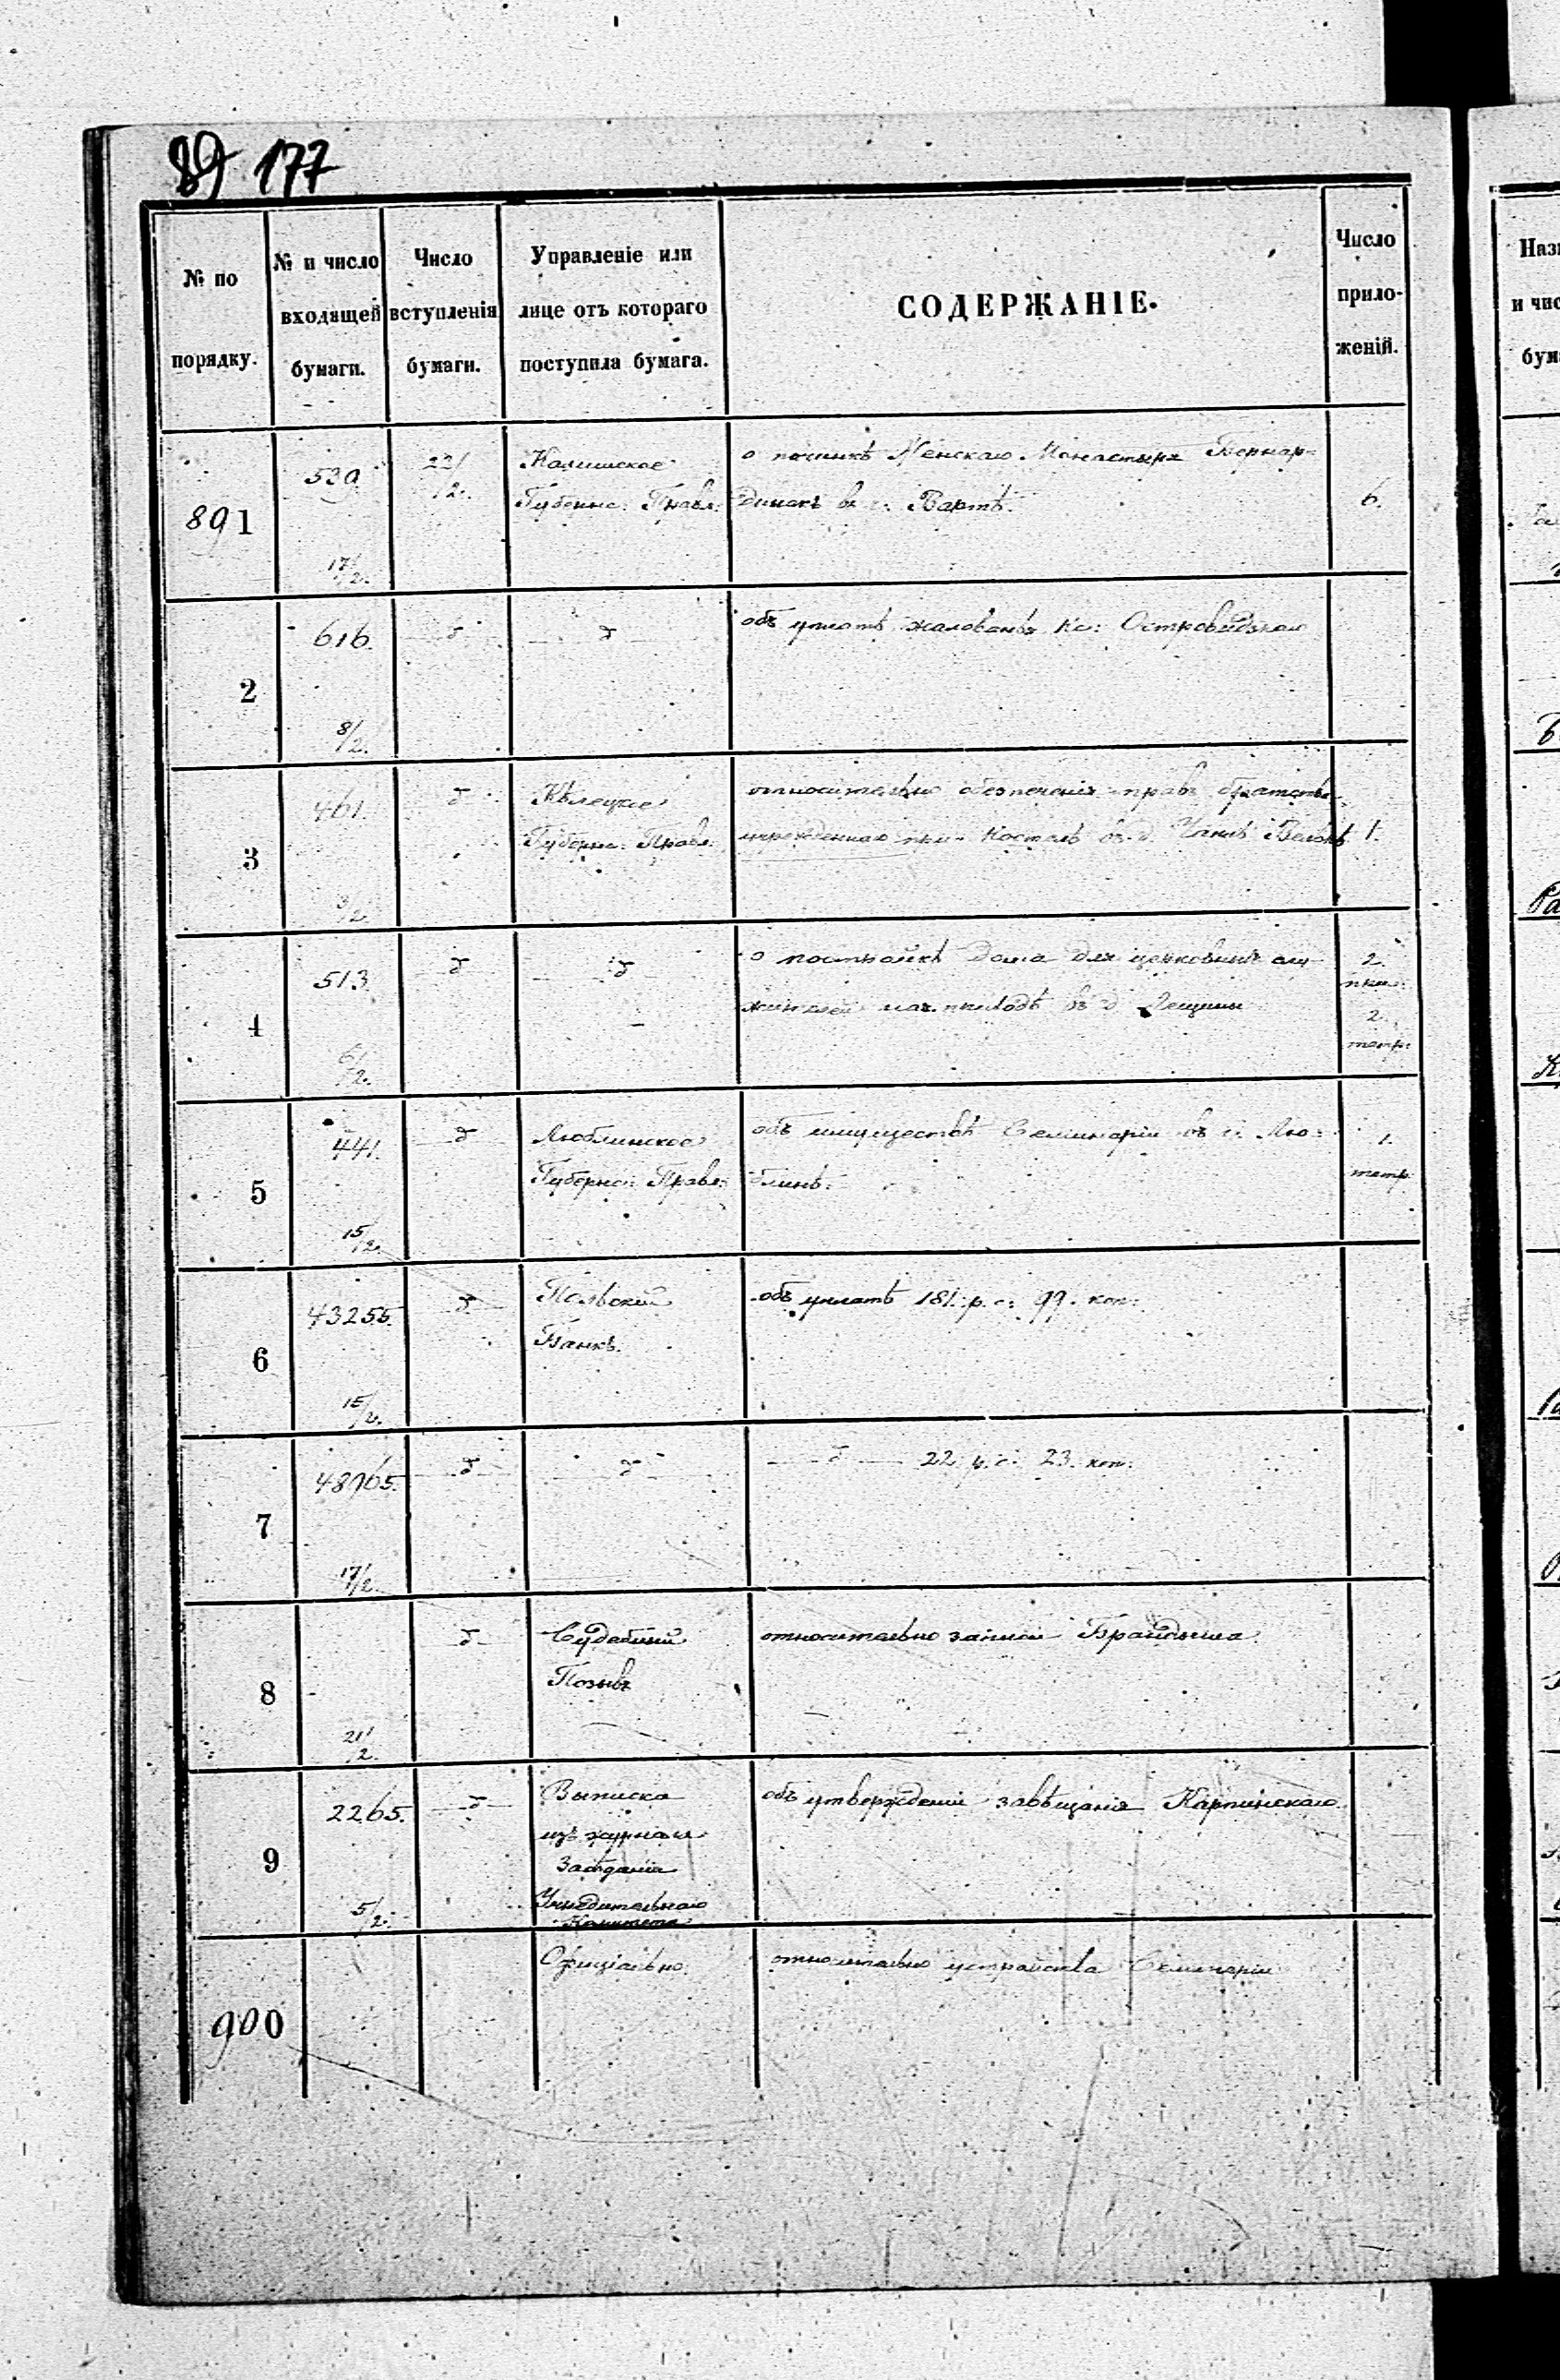 89 177
№ по
порядку.
№ и число
входящей
бумаги.
Число
вступленія
бумаги.
Управленіе или
лице отъ котораго
поступила бумага.
СОДЕРЖАНІЕ.
Число
прило-
женій.
891
539
17/2.
22/2.
Калишское
Губернс: Правл:
о починкѣ Женскаго Монастыря Бернар-
динокъ въ г: Вартѣ.
6.
2
616.
8/2.
д
д
объ уплатѣ жалованья Кс: Островидзкаго
3
461.
3/2
д
Кѣлецкое
Губернс: Правл:
относительно обезпеченія правъ братства
учрежденнаго при Костелѣ въ д.
1.
4
513
6/2.
д
д
о постройкѣ дома для церковныхъ слу-
жителей въ д
2.
2.
тетр:
5
441.
15/2.
д
Люблинское
Губернс: Правл:
объ имуществѣ Семинаріи въ г. Лю-
блинѣ.
1.
тетр.
6
43255.
15/2.
д
Польскій
Банкъ.
объ уплатѣ 181. р. с: 99. коп:
7
48765.
17/2
д
д
д 22 р. с: 23. коп:
8
21/2.
д
Судебный
Позывъ
относительно записи
9
2265.
5/2.
д
Выписка
изъ журнала
Засѣданія
Учредительнаго
Комитета
объ утвержденіи завѣщанія Карпинскаго.
900
Офиціально
относительно устройства Семинаріи